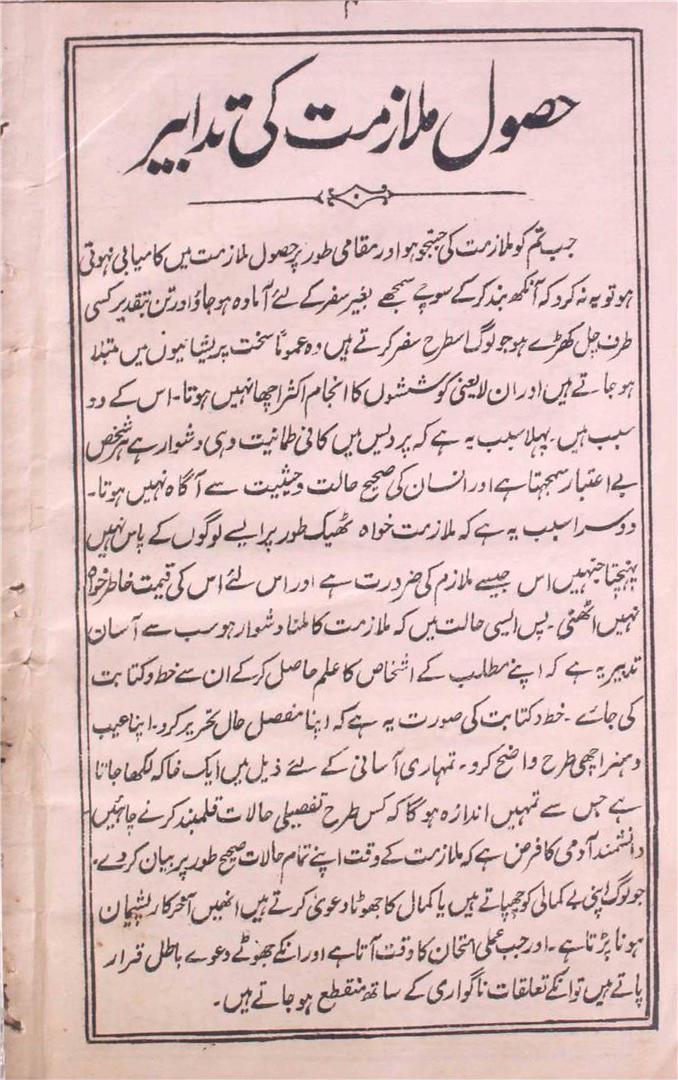 ۲
حصول ملازمت کی تدابیر
جب تم کو ملازمت کی جستجو ہو اور مقامی طور پر حصول ملازمت میں کامیابی نہوتی
ہو تو یہ نہ کرو کہ آنکھ بند کرکے سوچے سمجھے بغیر سفر کے لئے آمادہ ہو جاؤ اور تن بتقدیر کسی
طرف چل کھڑے ہو جو لوگ اسطرح سفر کرتے ہیں وہ عموماً سخت پریشانیوں میں مبتلا
ہو جاتے ہیں اور ان لایعنی کوششوں کا انجام اکثر اچھا نہیں ہوتا۔ اس کے دو
سبب ہیں۔ پہلا سبب یہ ہے کہ پردیس میں کافی طمانیت دہی دشوار ہے ہر شخص
بے اعتبار سمجھتا ہے اور انسان کی صحیح حالت و حیثیت سے آگاہ نہیں ہوتا۔
دوسرا سبب یہ ہے کہ ملازمت خواہ ٹھیک طور پر ایسے لوگوں کے پاس نہیں
پہنچتا جنہیں اس جیسے ملازم کی ضرورت ہے اور اس لئے اس کی قیمت خاطر خواہ
نہیں اٹھتی۔ پس ایسی حالت میں کہ ملازمت کا ملنا دشوار ہو سب سے آسان
تدبیر یہ ہے کہ اپنے مطلب کے اشخاص کا علم حاصل کرکے ان سے خط و کتابت
کی جائے۔ خط و کتابت کی صورت یہ ہے کہ اپنا مفصل حال تحریر کرو۔ اپنا عیب
و ہنر اچھی طرح واضح کرو۔ تمہاری آسانی کے لئے ذیل میں ایک خاکہ لکھا جاتا
ہے جس سے تمہیں اندازہ ہوگا کہ کس طرح تفصیلی حالات قلمبند کرنے چاہئیں۔
دانشمند آدمی کا فرض ہے کہ ملازمت کے وقت اپنے تمام حالات صحیح طور پر بیان کردے۔
جو لوگ اپنی بے کمالی کو چھپاتے ہیں یا کمال کا جھوٹا دعویٰ کرتے ہیں انھیں آخر کار پشیمان
ہونا پڑتا ہے۔ اور جب عملی امتحان کا وقت آتا ہے اور انکے جھوٹے دعوے باطل قرار
پاتے ہیں تو انکے تعلقات ناگواری کے ساتھ منقطع ہو جاتے ہیں۔